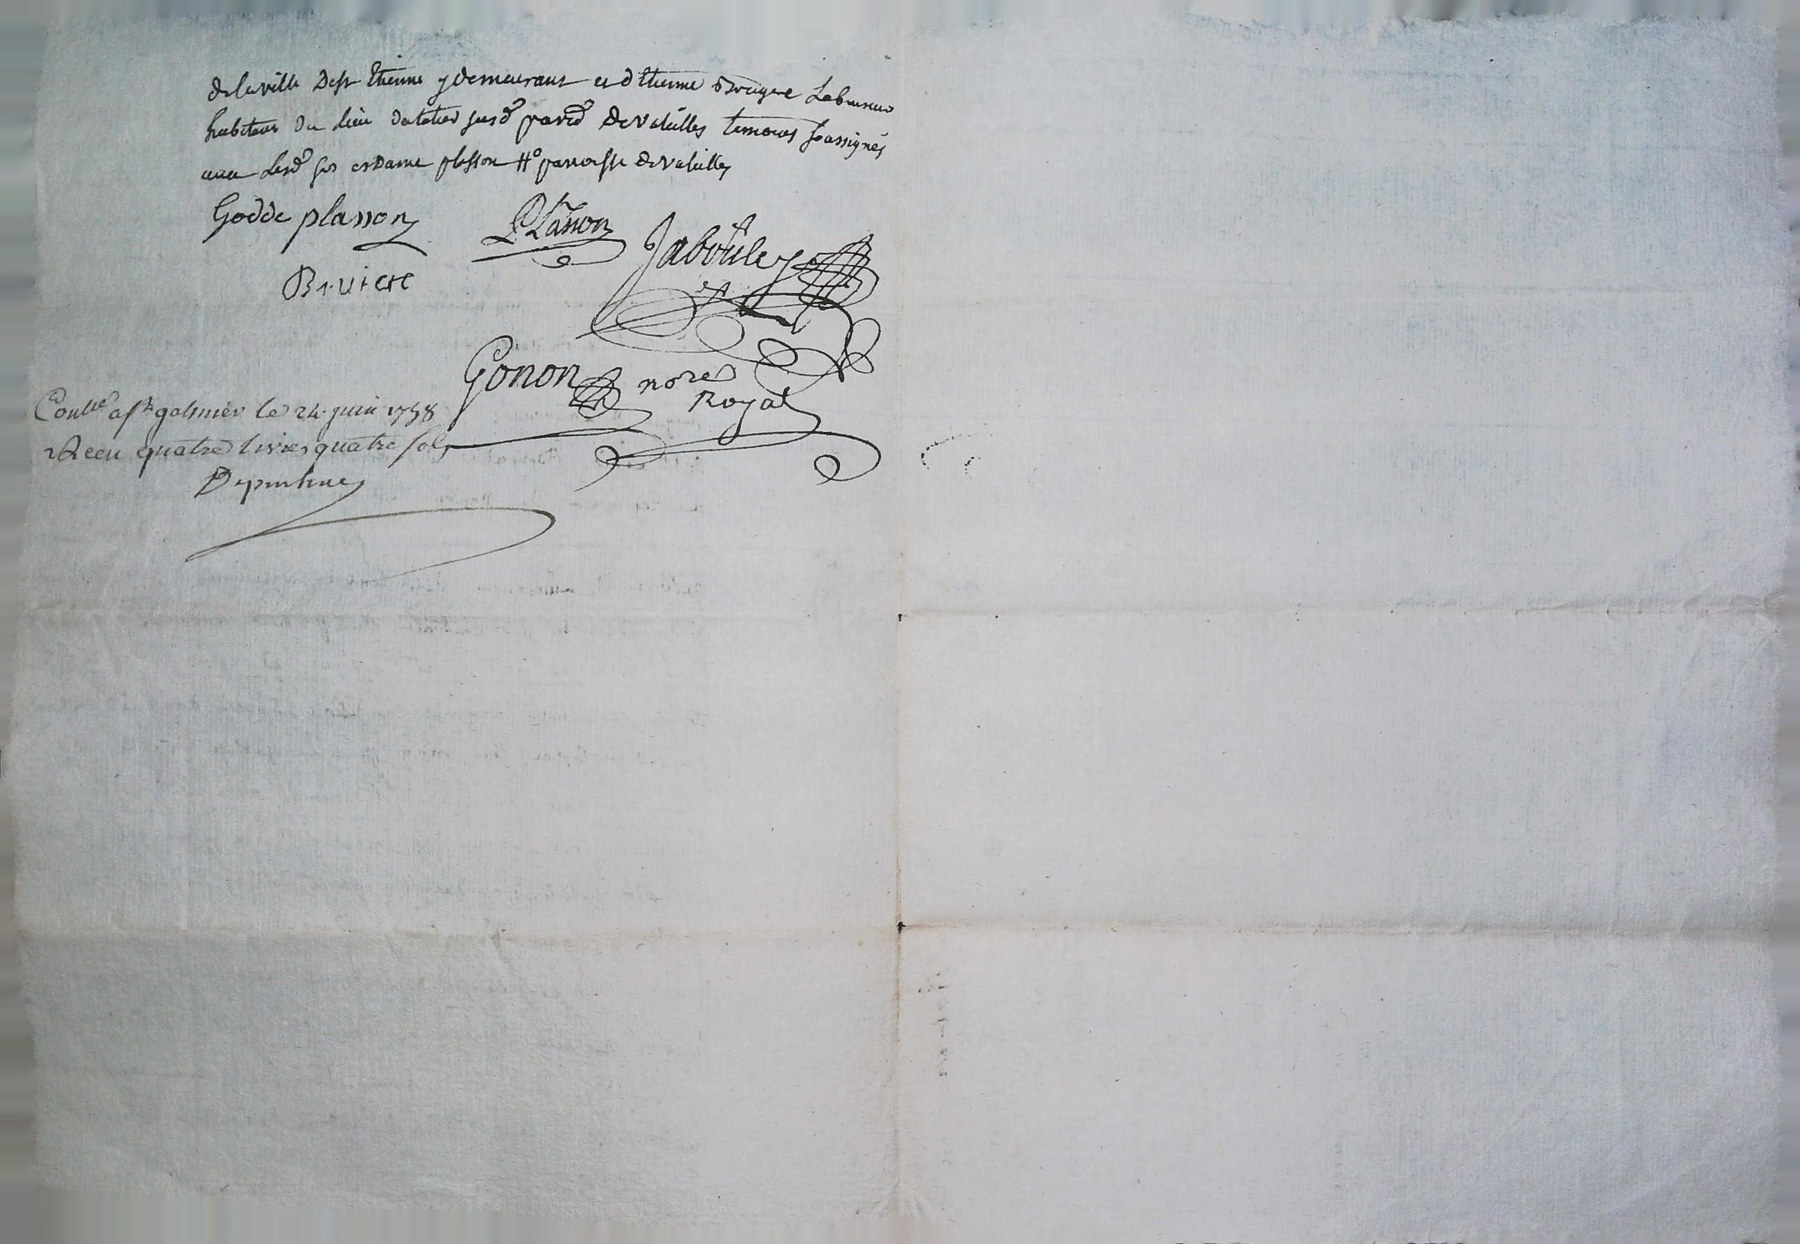 de la ville de st Etienne y demeurant et d'Etienne
habitant du lieu susd parce De valeilles temoins soussignés
avec Lesd srs et Dame plasson #° parroisse de valeilles
Godde plasson
Plasson
Jabouley
Briviere
Gonon nore
Royal
Conlle a st galmier le 24 juin 1758
Receu quatre livres quatre sols